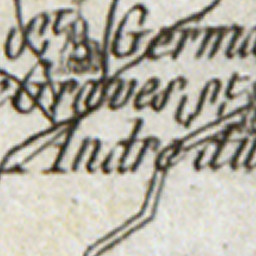 St. Germa
Graves, St.
Andre du